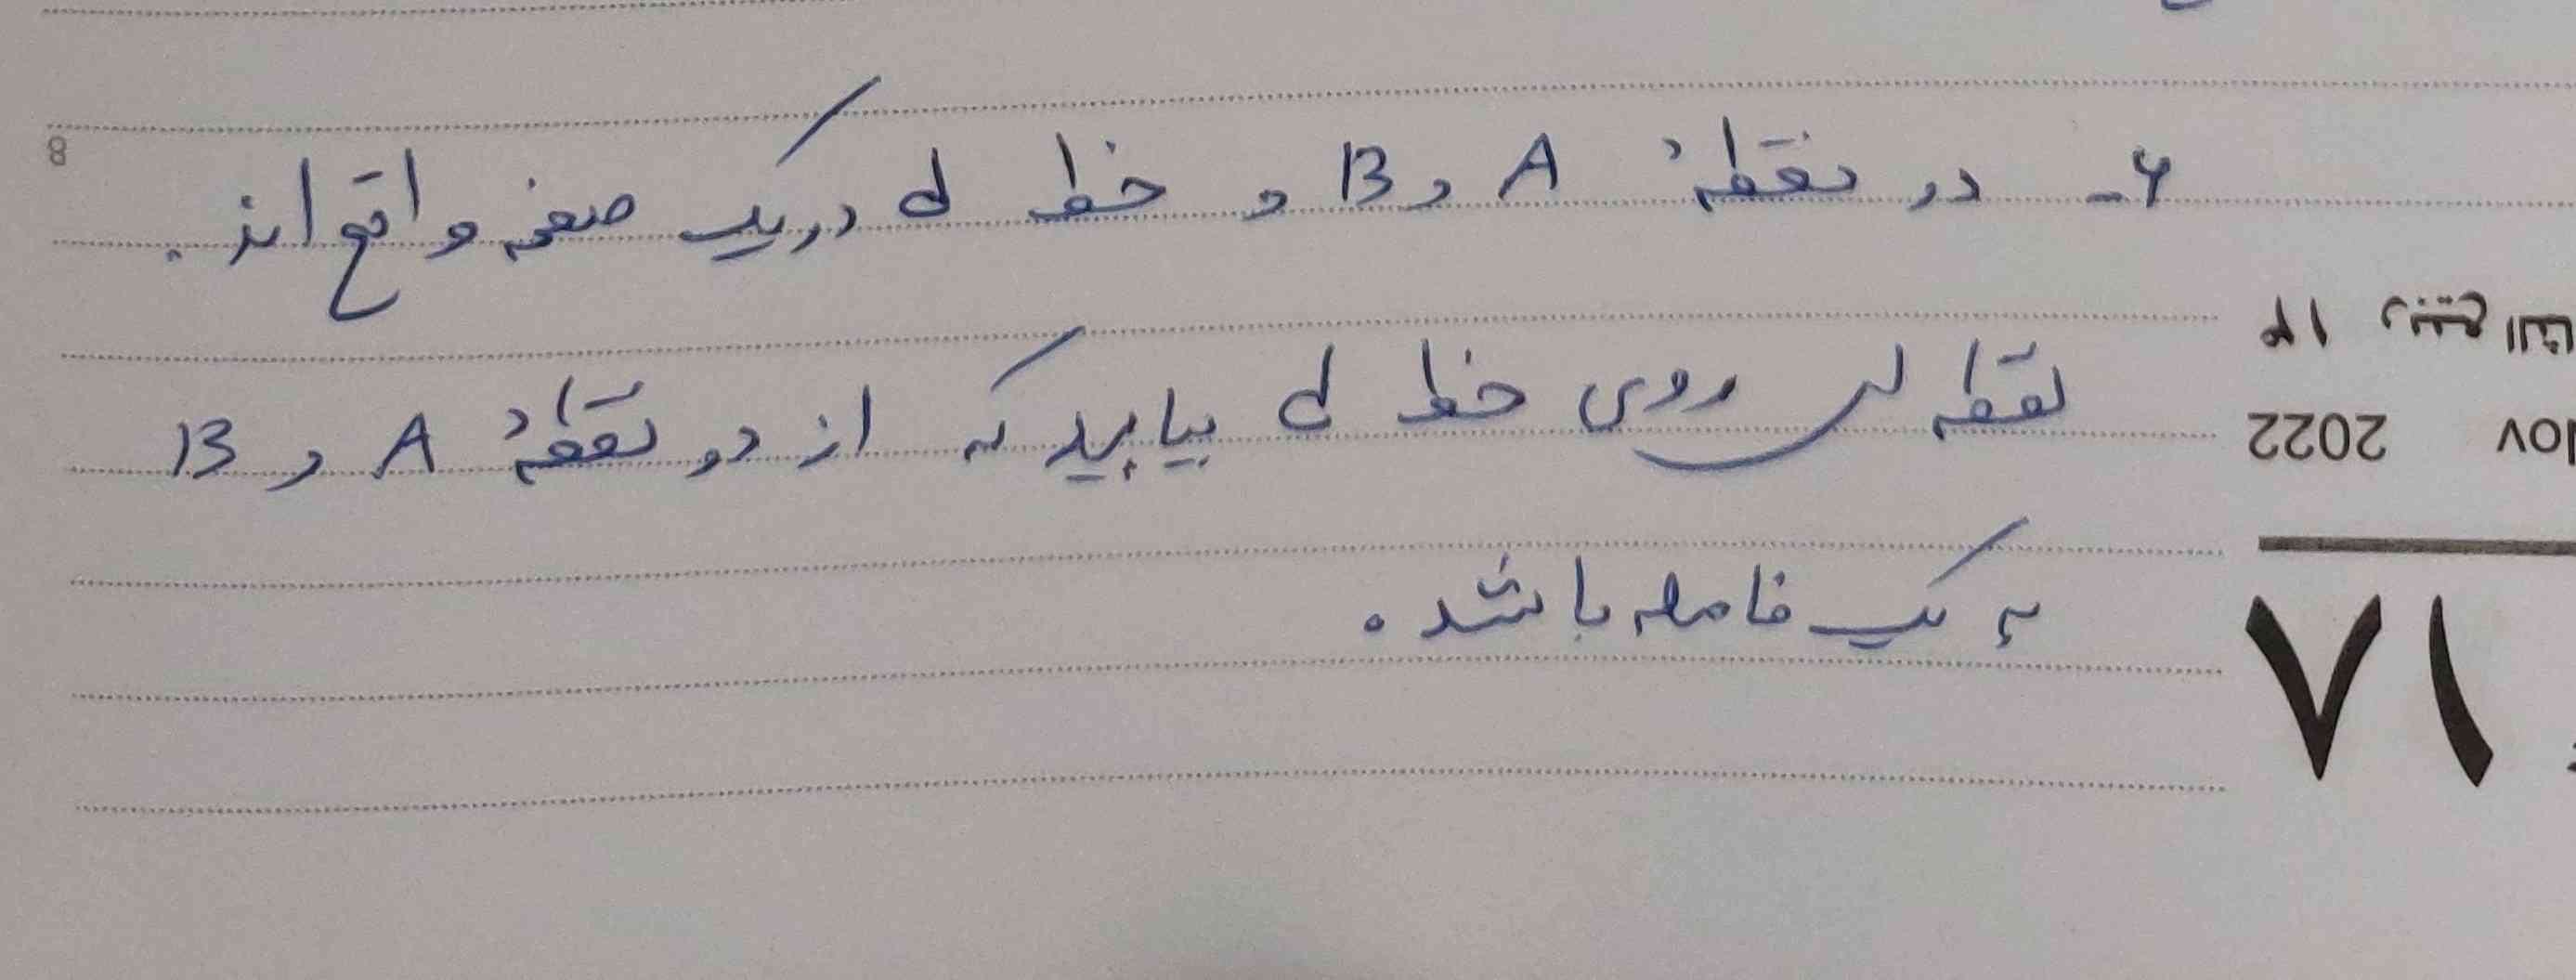 ۶- دو نقطهٔ A و B و خط d در یک صفحه واقع اند.
نقطه ای روی خط d بیابید که از دو نقطهٔ A و B
به یک فاصله باشد.
8
ربیع الثا ۲۱
Nov 2022
۱۷